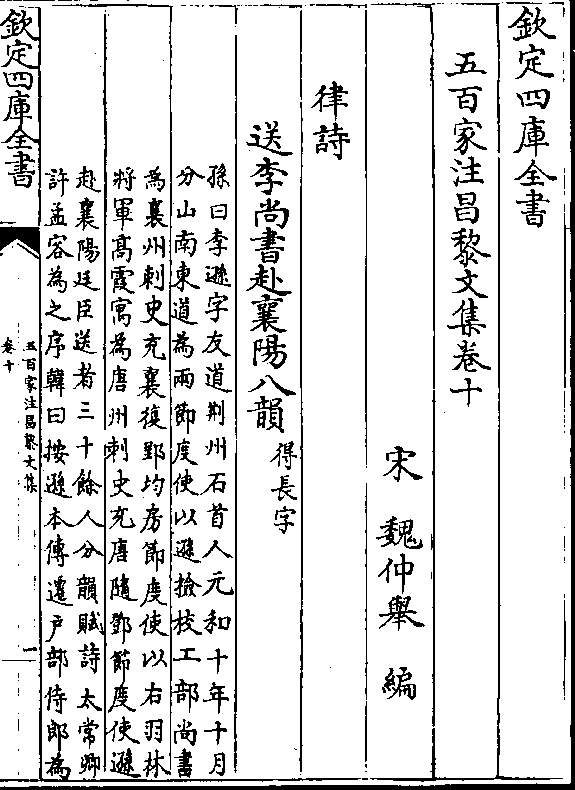 欽定四庫全書
五百家注昌黎文集卷十
宋 魏仲舉 編
律詩
送李尚書赴襄陽八韻 得長字
孫曰李遜字友道荆州石首人元和十年十月
分山南東道為兩節度使以遜檢校工部尚書
為襄州刺史充襄復郢均房節度使以右羽林
將軍髙霞寓為唐州刺史充唐隨鄧節度使遜
赴襄陽廷臣送者三十餘人分韻賦詩太常卿
許孟容為之序韓曰按遜本傳遷户部侍郎為
欽定四庫全書
五百家注昌黎文集
卷十
一